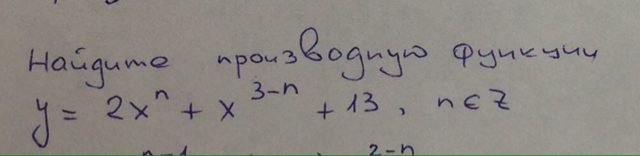 Найдите производную функции
y = 2xⁿ + x³⁻ⁿ + 13, n ∈ Z